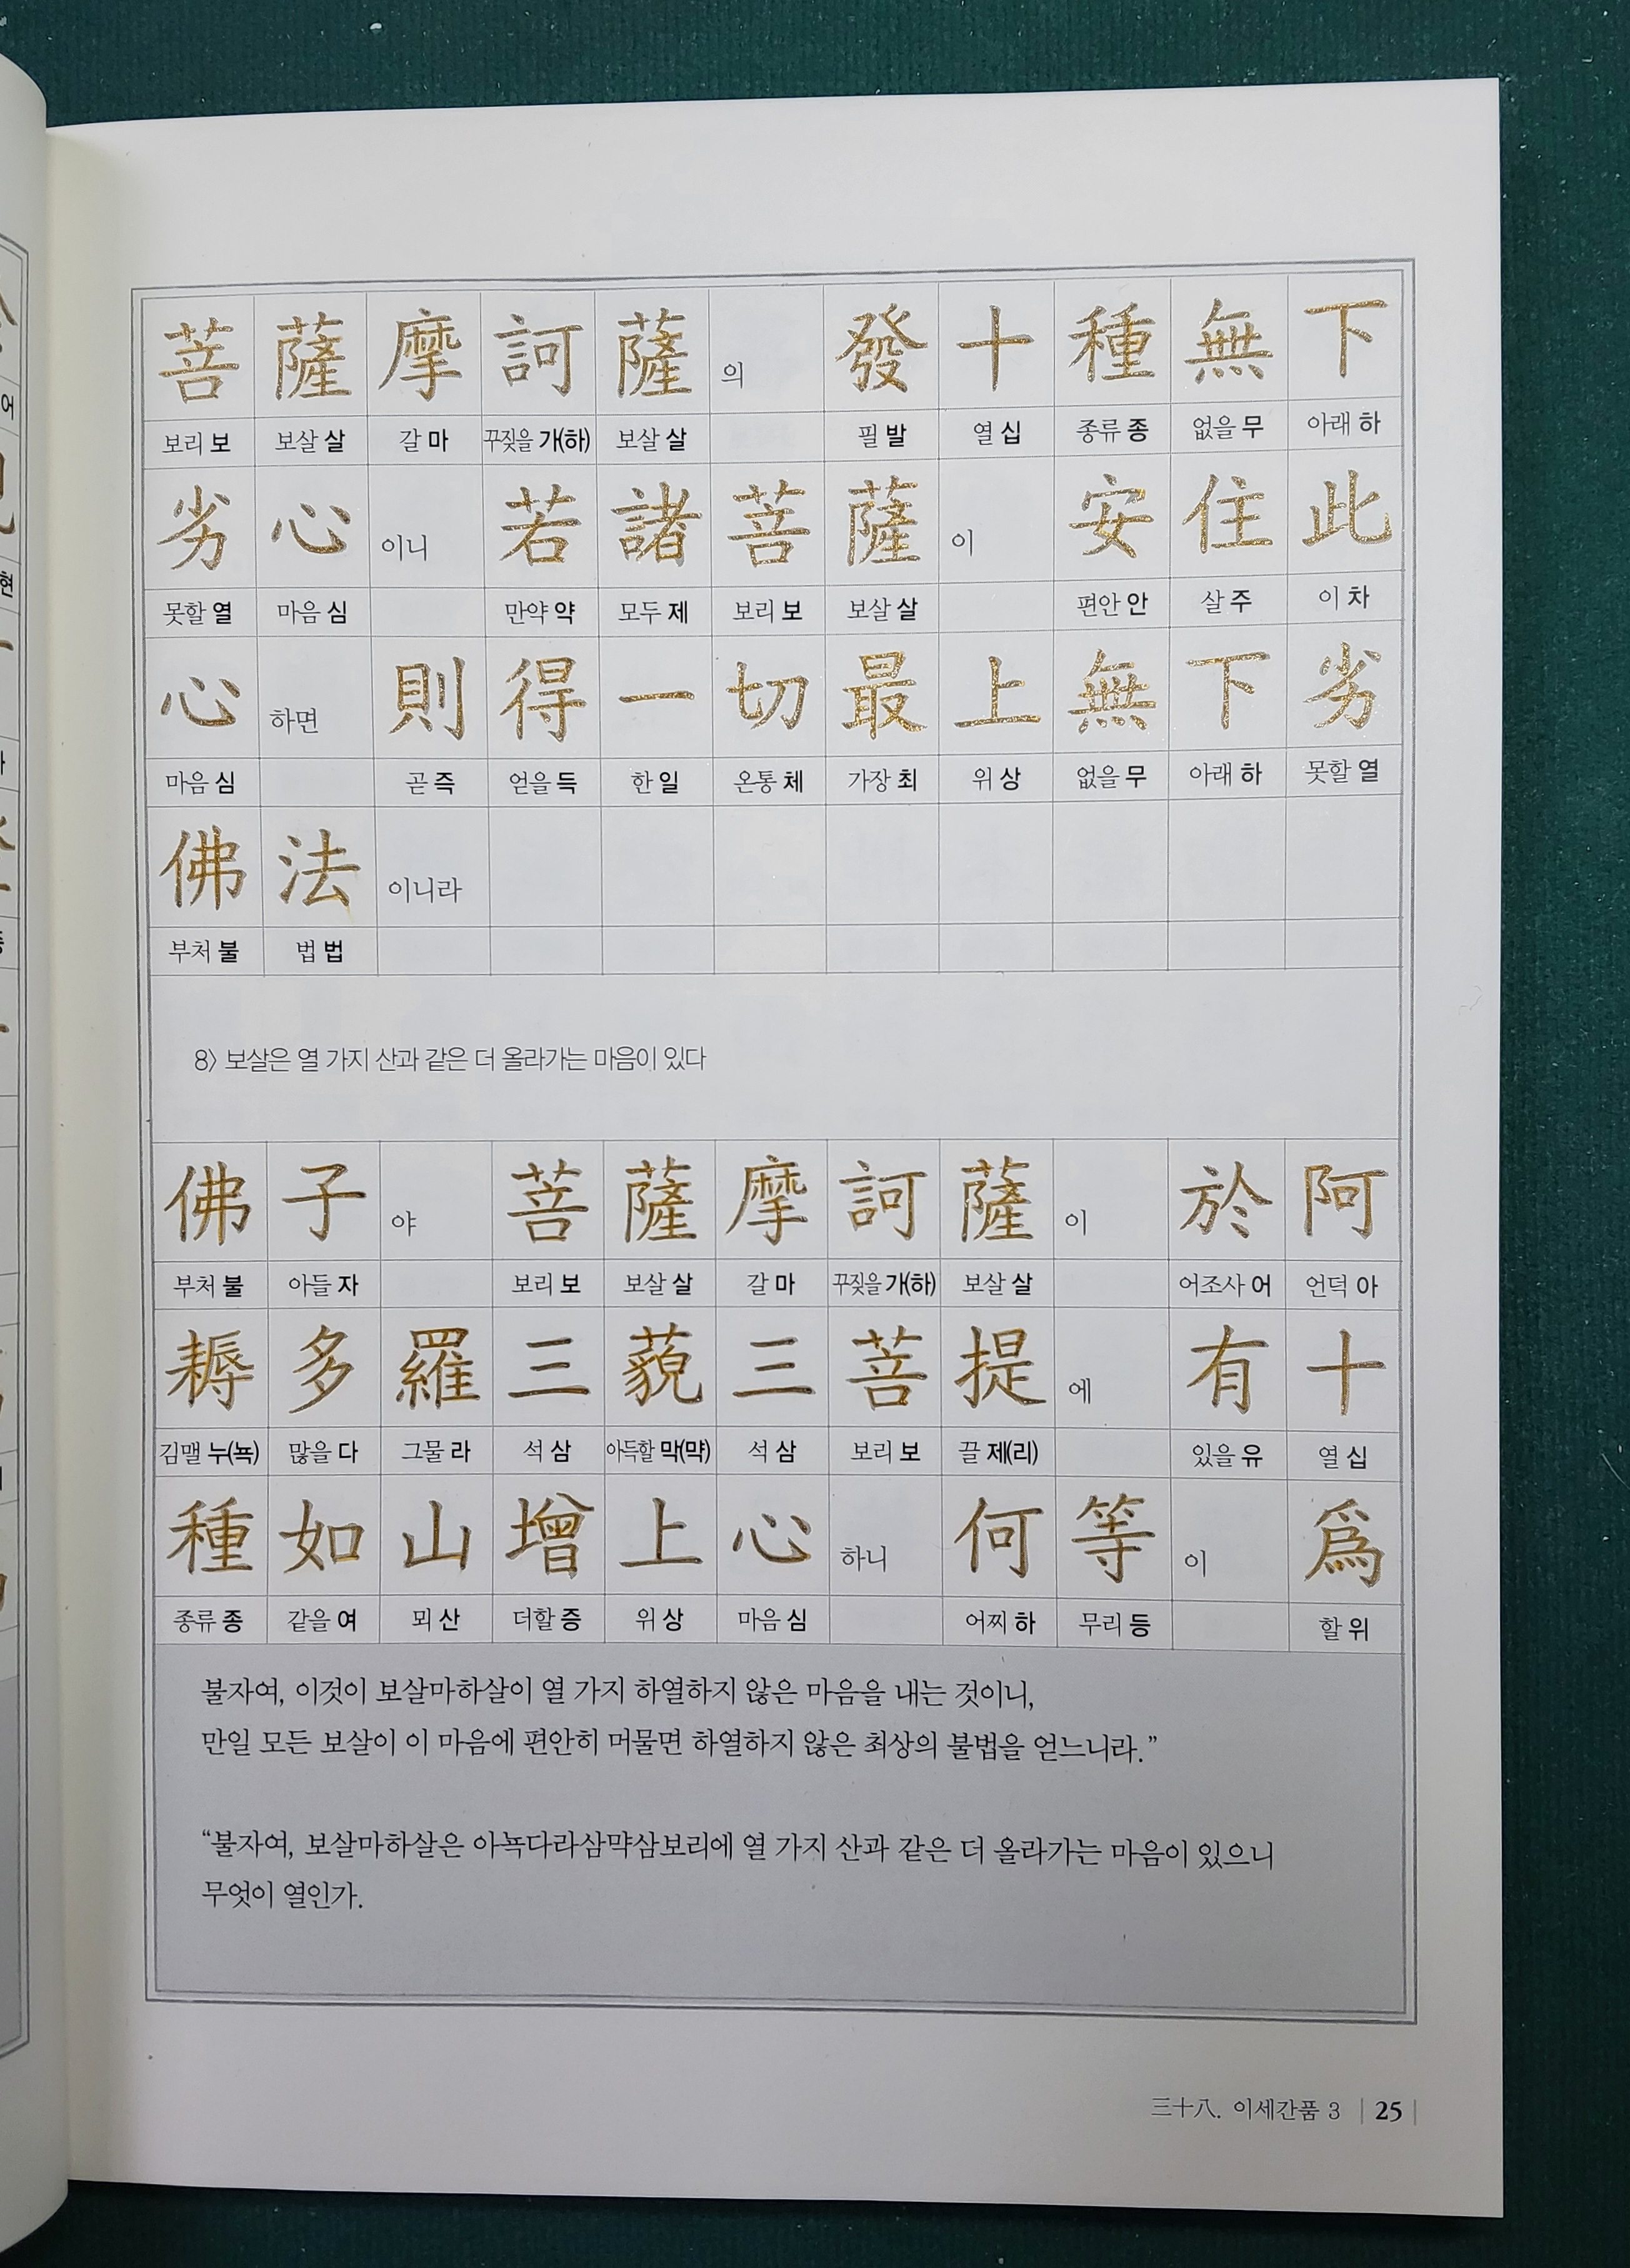 菩薩摩訶薩의 發十種無下
보리 보 보살 살 갈 마 꾸짖을 가(하) 보살 살 필 발 열 십 종류 종 없을 무 아래 하
劣心이니 若諸菩薩이 安住此
못할 열 마음 심 만약 약 모두 제 보리 보 보살 살 편안 안 살 주 이 차
心하면 則得一切最上無下劣
마음 심 곧 즉 얻을 득 한 일 온통 체 가장 최 위 상 없을 무 아래 하 못할 열
佛法이니라
부처 불 법 법
8〉 보살은 열 가지 산과 같은 더 올라가는 마음이 있다
佛子야 菩薩摩訶薩이 於阿
부처 불 아들 자 보리 보 보살 살 갈 마 꾸짖을 가(하) 보살 살 어조사 어 언덕 아
耨多羅三藐三菩提에 有十
김맬 누(뇩) 많을 다 그물 라 석 삼 아득할 막(먁) 석 삼 보리 보 끌 제(리) 있을 유 열 십
種如山增上心하니 何等이 爲
종류 종 같을 여 뫼 산 더할 증 위 상 마음 심 어찌 하 무리 등 할 위
불자여, 이것이 보살마하살이 열 가지 하열하지 않은 마음을 내는 것이니,
만일 모든 보살이 이 마음에 편안히 머물면 하열하지 않은 최상의 불법을 얻느니라.”
“불자여, 보살마하살은 아뇩다라삼먁삼보리에 열 가지 산과 같은 더 올라가는 마음이 있으니
무엇이 열인가.
三十八. 이세간품 3 | 25 |